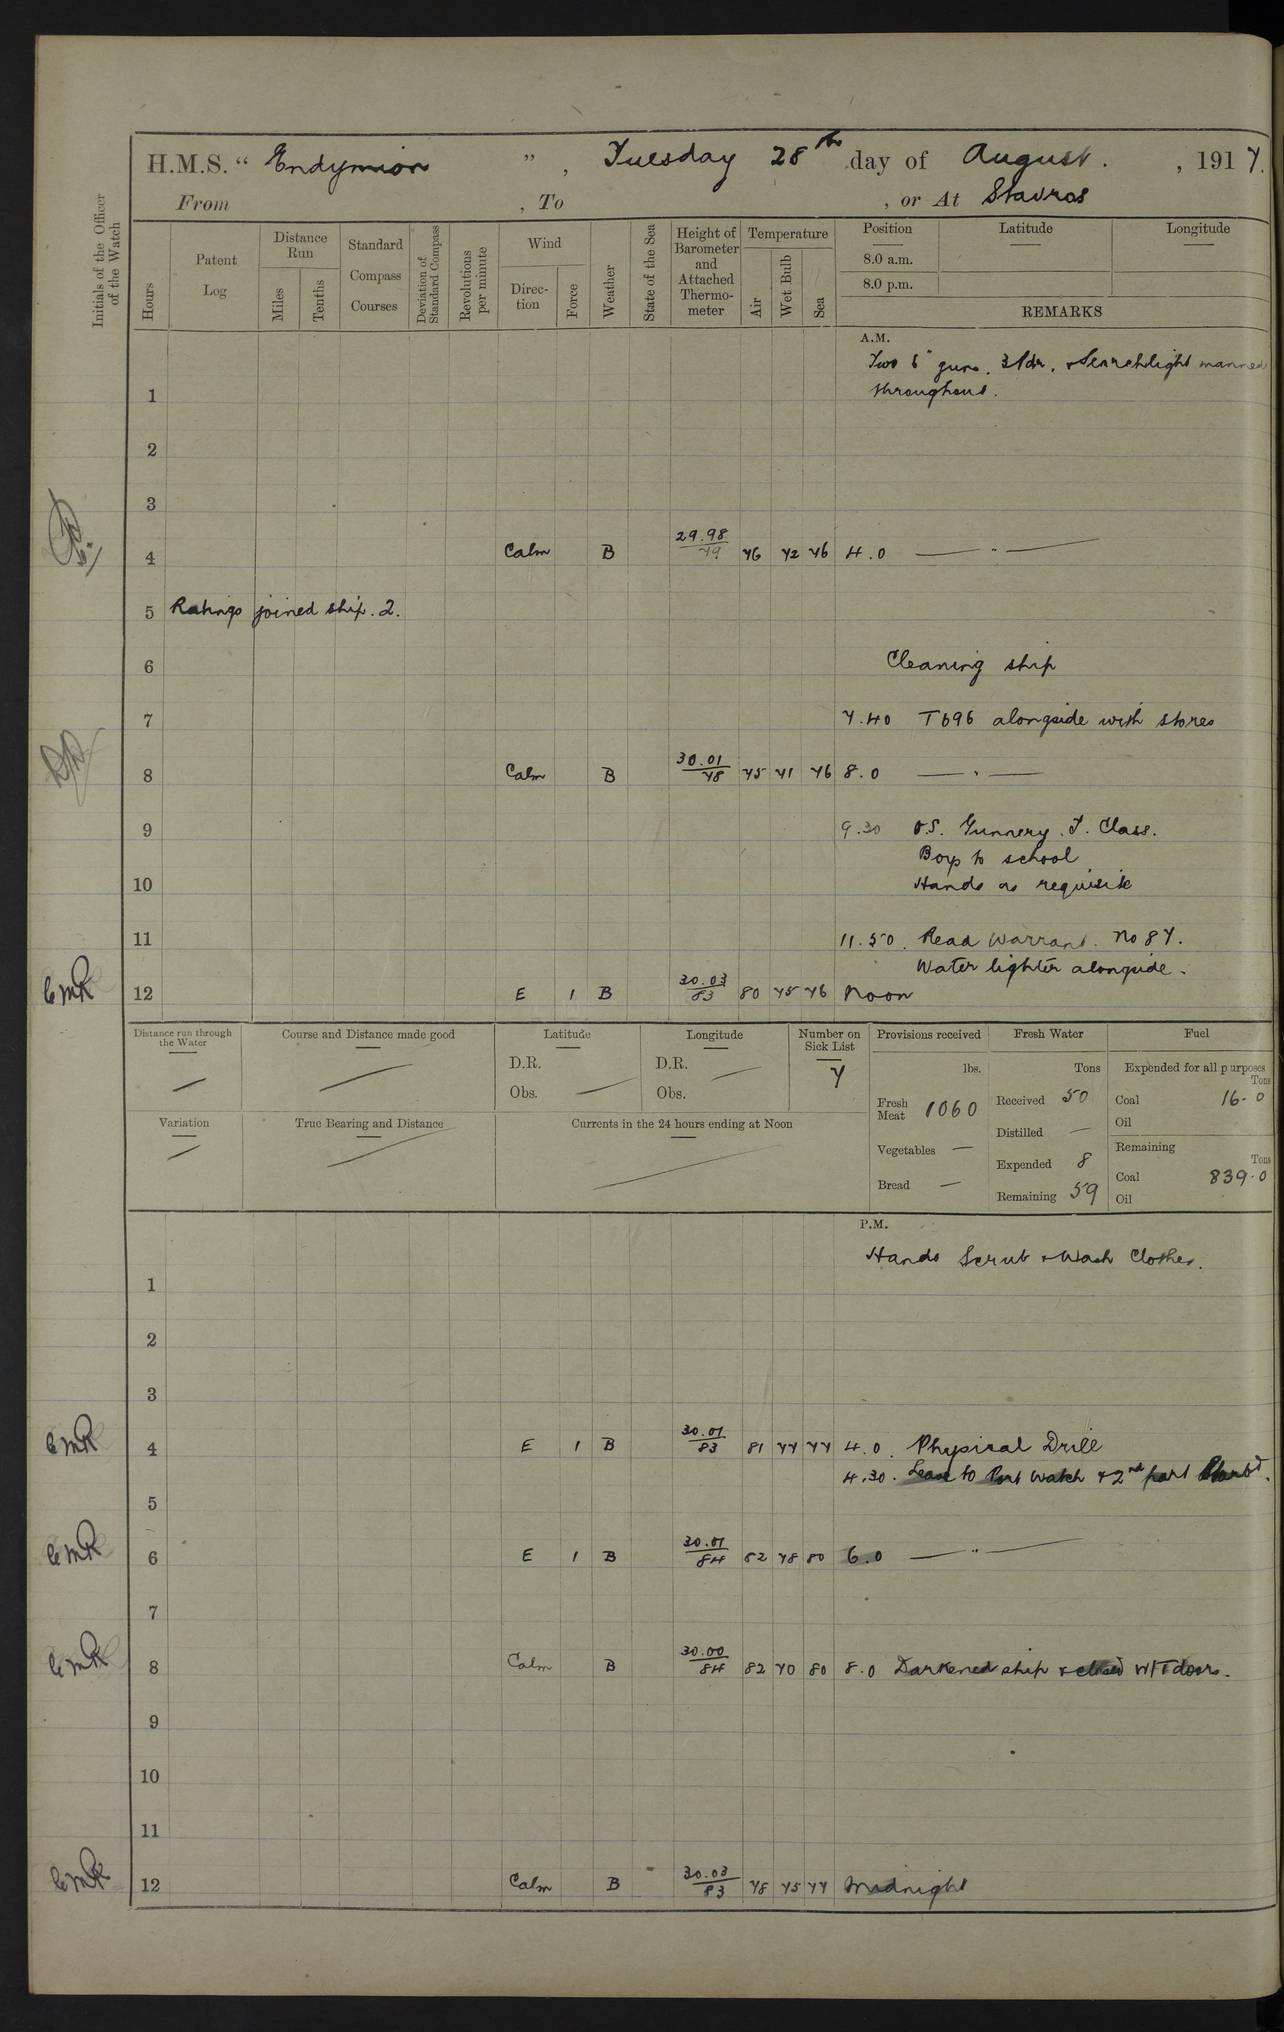 H.M.S. " Endymion " , Tuesday 28th day of August. , 1917.
From , To , or At Stavros
Initials of the Officer of the Watch
Hours
Patent Log
Distance Run
Miles
Tenths
Standard Compass Courses
Deviation of Standard Compass
Revolutions per minute
Wind
Direction
Force
Weather
State of the Sea
Height of Barometer and Attached Thermometer
Temperature
Air
Wet Bulb
Sea
Position Latitude Longitude
8.0 a.m.
8.0 p.m.
REMARKS
A.M.
Two 6" guns. 3 Pdr. & Searchlight manned
1 throughout.
2
3
4 Calm B 29.98/79 76 72 76 4.0 — " —
5 Ratings joined ship. 2.
6 Cleaning ship
7 7.40 T696 alongside with stores
8 Calm B 30.01/78 75 71 76 8.0 — " —
9 9.30 O.S. Gunnery. T. Class.
Boys to school
10 Hands as requisite
11 11.50. Read Warrant. No 87.
Water lighter alongside.
CMR 12 E 1 B 30.03/83 80 75 76 Noon
Distance run through the Water
Course and Distance made good
Latitude
D.R.
Obs. —
Longitude
D.R. —
Obs.
Number on Sick List
7
Variation
True Bearing and Distance
Currents in the 24 hours ending at Noon
Provisions received
lbs.
Fresh Meat 1060
Vegetables —
Bread —
Fresh Water
Tons
Received 50
Distilled —
Expended 8
Remaining 59
Fuel
Expended for all purposes
Tons
Coal 16.0
Oil
Remaining
Tons
Coal 839.0
Oil
P.M.
Hands Scrub & Wash Clothes.
1
2
3
CMR 4 E 1 B 30.01/83 81 77 77 4.0. Physical Drill
4.30. Leave to Port Watch & 2nd part Starbd.
5
CMR 6 E 1 B 30.01/84 82 78 80 6.0 — " —
7
CMR 8 Calm B 30.00/84 82 70 80 8.0 Darkened ship & closed W/T doors.
9
10
11
CMR 12 Calm B 30.03/83 78 75 77 Midnight